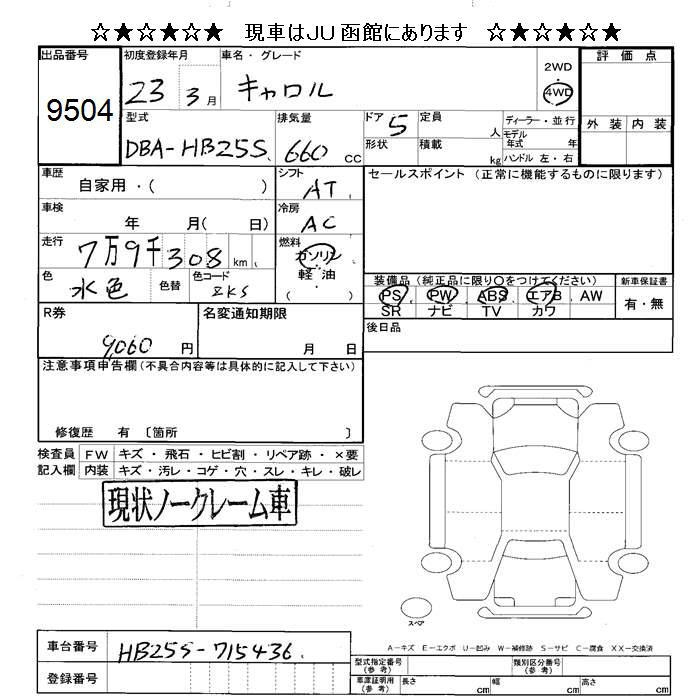 ☆★☆★☆★ 現車はJU函館にあります ☆★☆★☆★
出品番号 初度登録年月 車名・グレード 2WD 評価点
9504 23 3月 キャロル 4WD
型式 排気量 ドア 5 定員 人 ディーラー・並行 外装 内装
DBA-HB25S 660cc 形状 積載 kg モデル年式 年
ハンドル 左・右
車歴 自家用・( ) シフト AT セールスポイント (正常に機能するものに限ります)
車検 年 月( 日) 冷房 AC
走行 7万9千308km 燃料 ガソリン・軽油
( )
色 水色 色替 色コード ZKS 装備品 (純正品に限り〇をつけてください) 新車保証書
PS PW ABS エアB AW 有・無
SR ナビ TV カワ
R券 名変通知期限 後日品
9,060円 月 日
注意事項申告欄(不具合内容等は具体的に記入して下さい)
修復歴 有 〔箇所 〕
検査員 FW キズ・飛石・ヒビ割・リペア跡・×要
記入欄 内装 キズ・汚レ・コゲ・穴・スレ・キレ・破レ
現状ノークレーム車
スペア
A-キズ E-エクボ U-凹み W-補修跡 S-サビ C-腐食 XX-交換済
車台番号 HB25S-715436
登録番号
型式指定番号(参考) 類別区分番号(参考)
車庫証明用(参考) 長さ cm 幅 cm 高さ cm